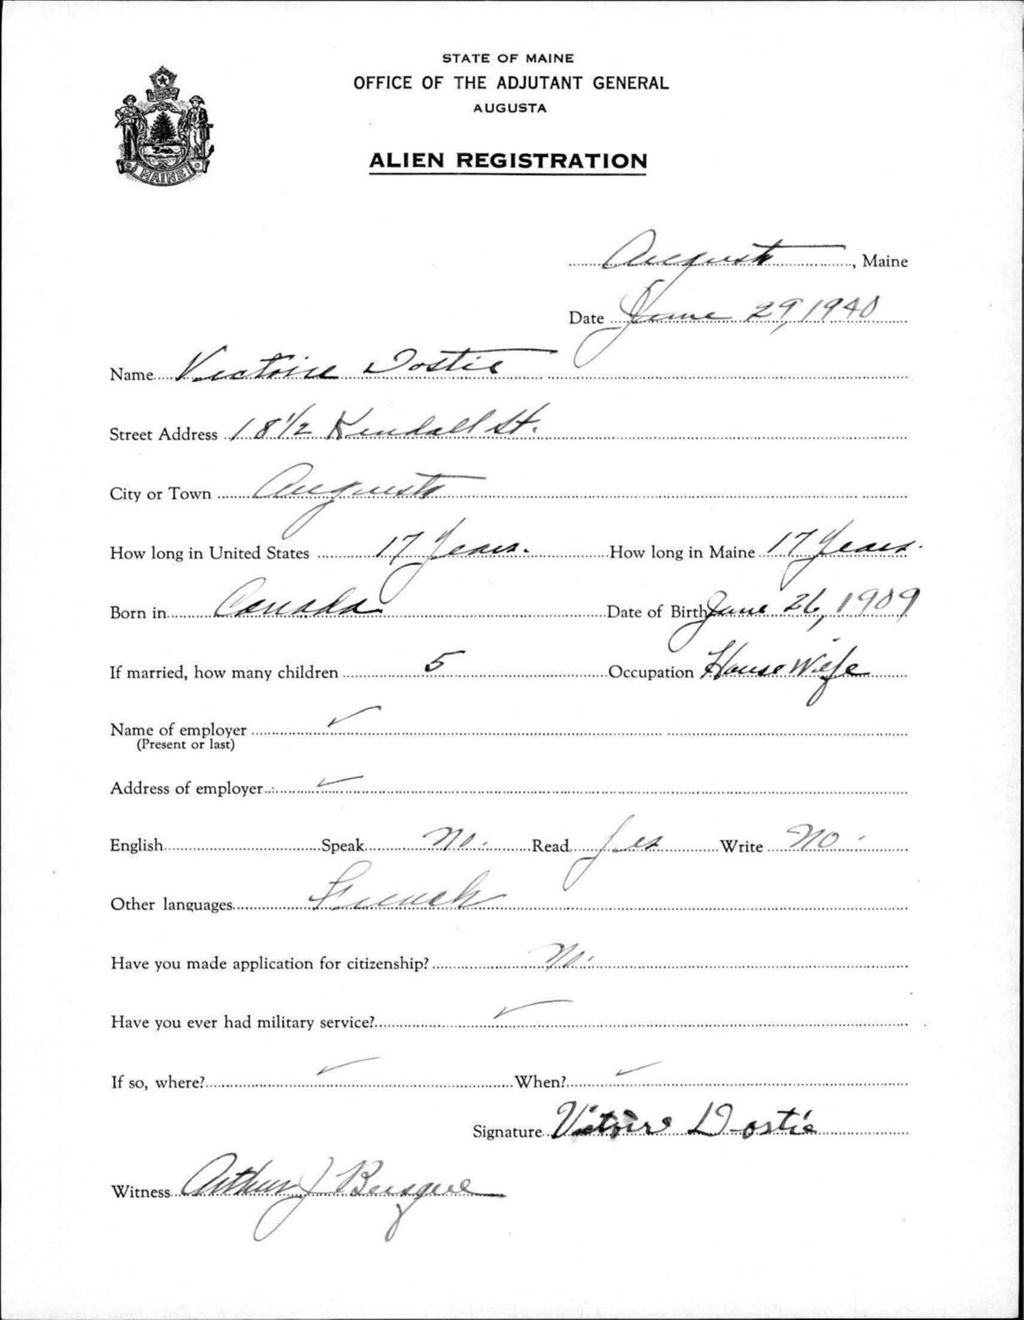 STATE OF MAINE
OFFICE OF THE ADJUTANT GENERAL
AUGUSTA
ALIEN REGISTRATION
MAINE
Augusta, Maine
Date June 29, 1940
Name Victoire Dostie
Street Address 18 1/2 Kendall St.
City or Town Augusta
How long in United States 17 Years. How long in Maine 17 Years.
Born in Canada Date of Birth June 26, 1909
If married, how many children 5 Occupation House Wife
Name of employer ✓
(Present or last)
Address of employer ✓
English Speak No. Read Yes Write No.
Other languages French
Have you made application for citizenship? No.
Have you ever had military service? ✓
If so, where? ✓ When? ✓
Signature Victoire Dostie
Witness Arthur J Busque